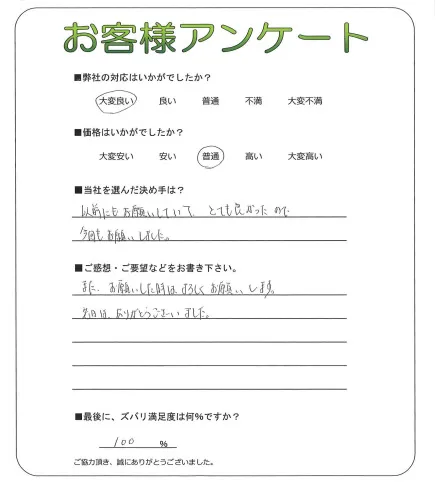 お客様アンケート
■弊社の対応はいかがでしたか？
大変良い 良い 普通 不満 大変不満
■価格はいかがでしたか？
大変安い 安い 普通 高い 大変高い
■当社を選んだ決め手は？
以前にもお願いしていて、とても良かったので
今回もお願いしました。
■ご感想・ご要望などをお書き下さい。
また、お願いした時はよろしくお願いします。
本日は、ありがとうございました。
■最後に、ズバリ満足度は何%ですか？
100 %
ご協力頂き、誠にありがとうございました。